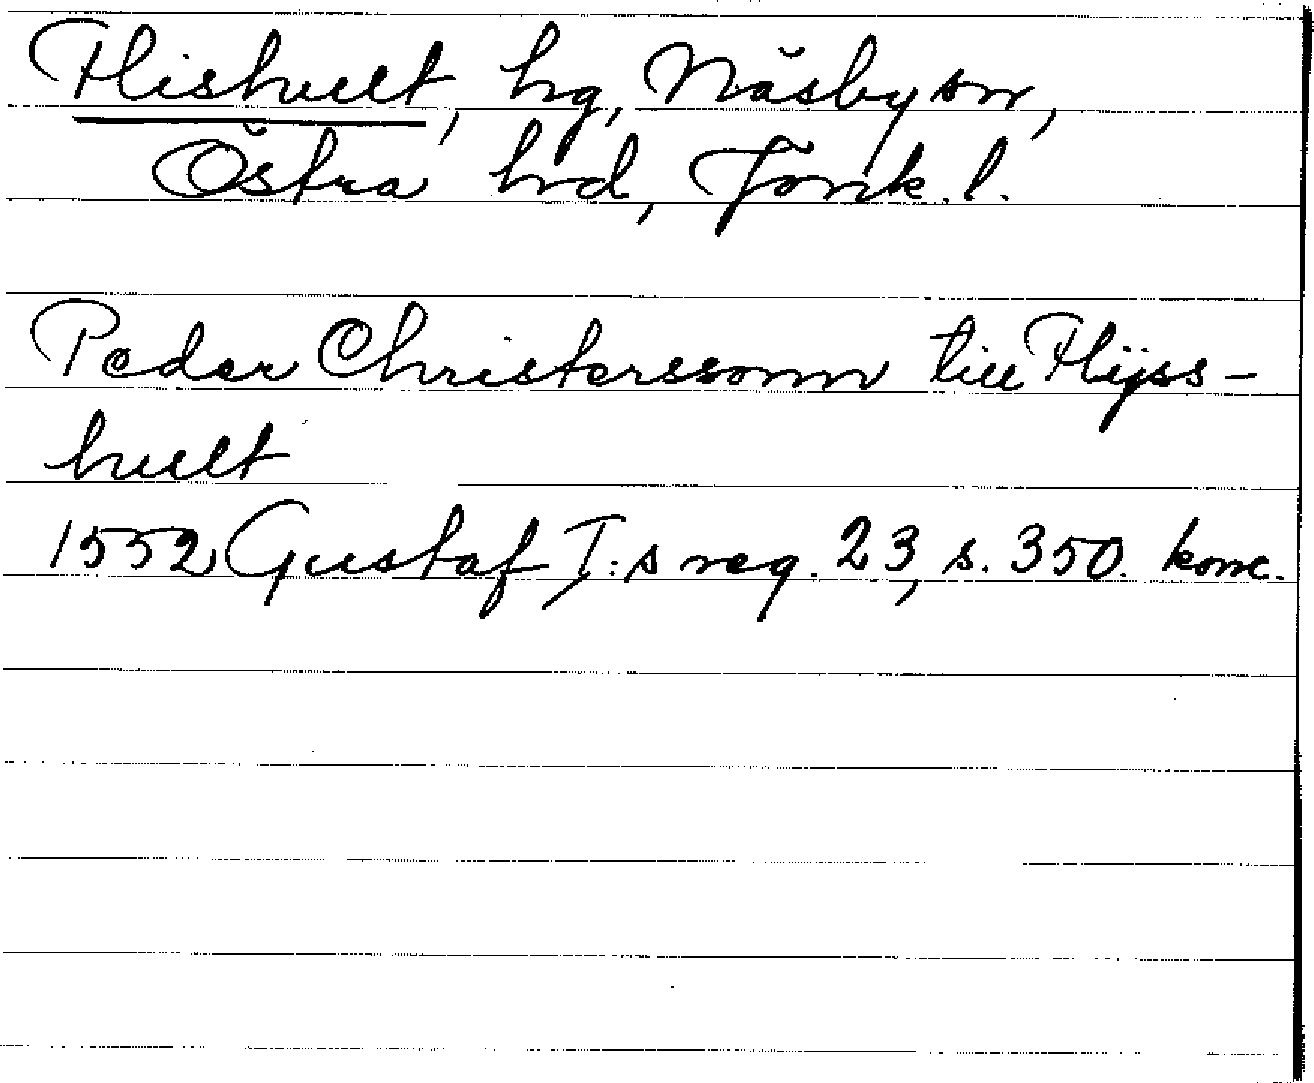 Flishult, hg, Näsby sn,
Östra hrd, Jönk. l.
Peder Christerssonn till Flijss-
hullt
1552 Gustaf I:s reg. 23, s. 350. konc.